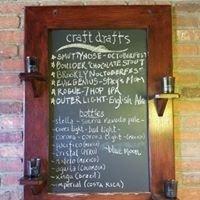 craft drafts
SMUTTYNOSE - OCTOBERFEST
BOULDER CHOCOLATE STOUT
BROOKLYN OCTOBERFEST
EVIL GENIUS - Stacy's Mom
ROGUE - 7 HOP IPA
OUTER LIGHT - English Ale
bottles
- stella - sierra nevada pale -
- coors light - bud light -
- corona - corona light - (mexico)
- pacifico (mexico)
- cristal (peru) - blue moon
- modelo (mexico)
- aguila (colombia)
- xingu (brazil)
- imperial (COSTA RICA)